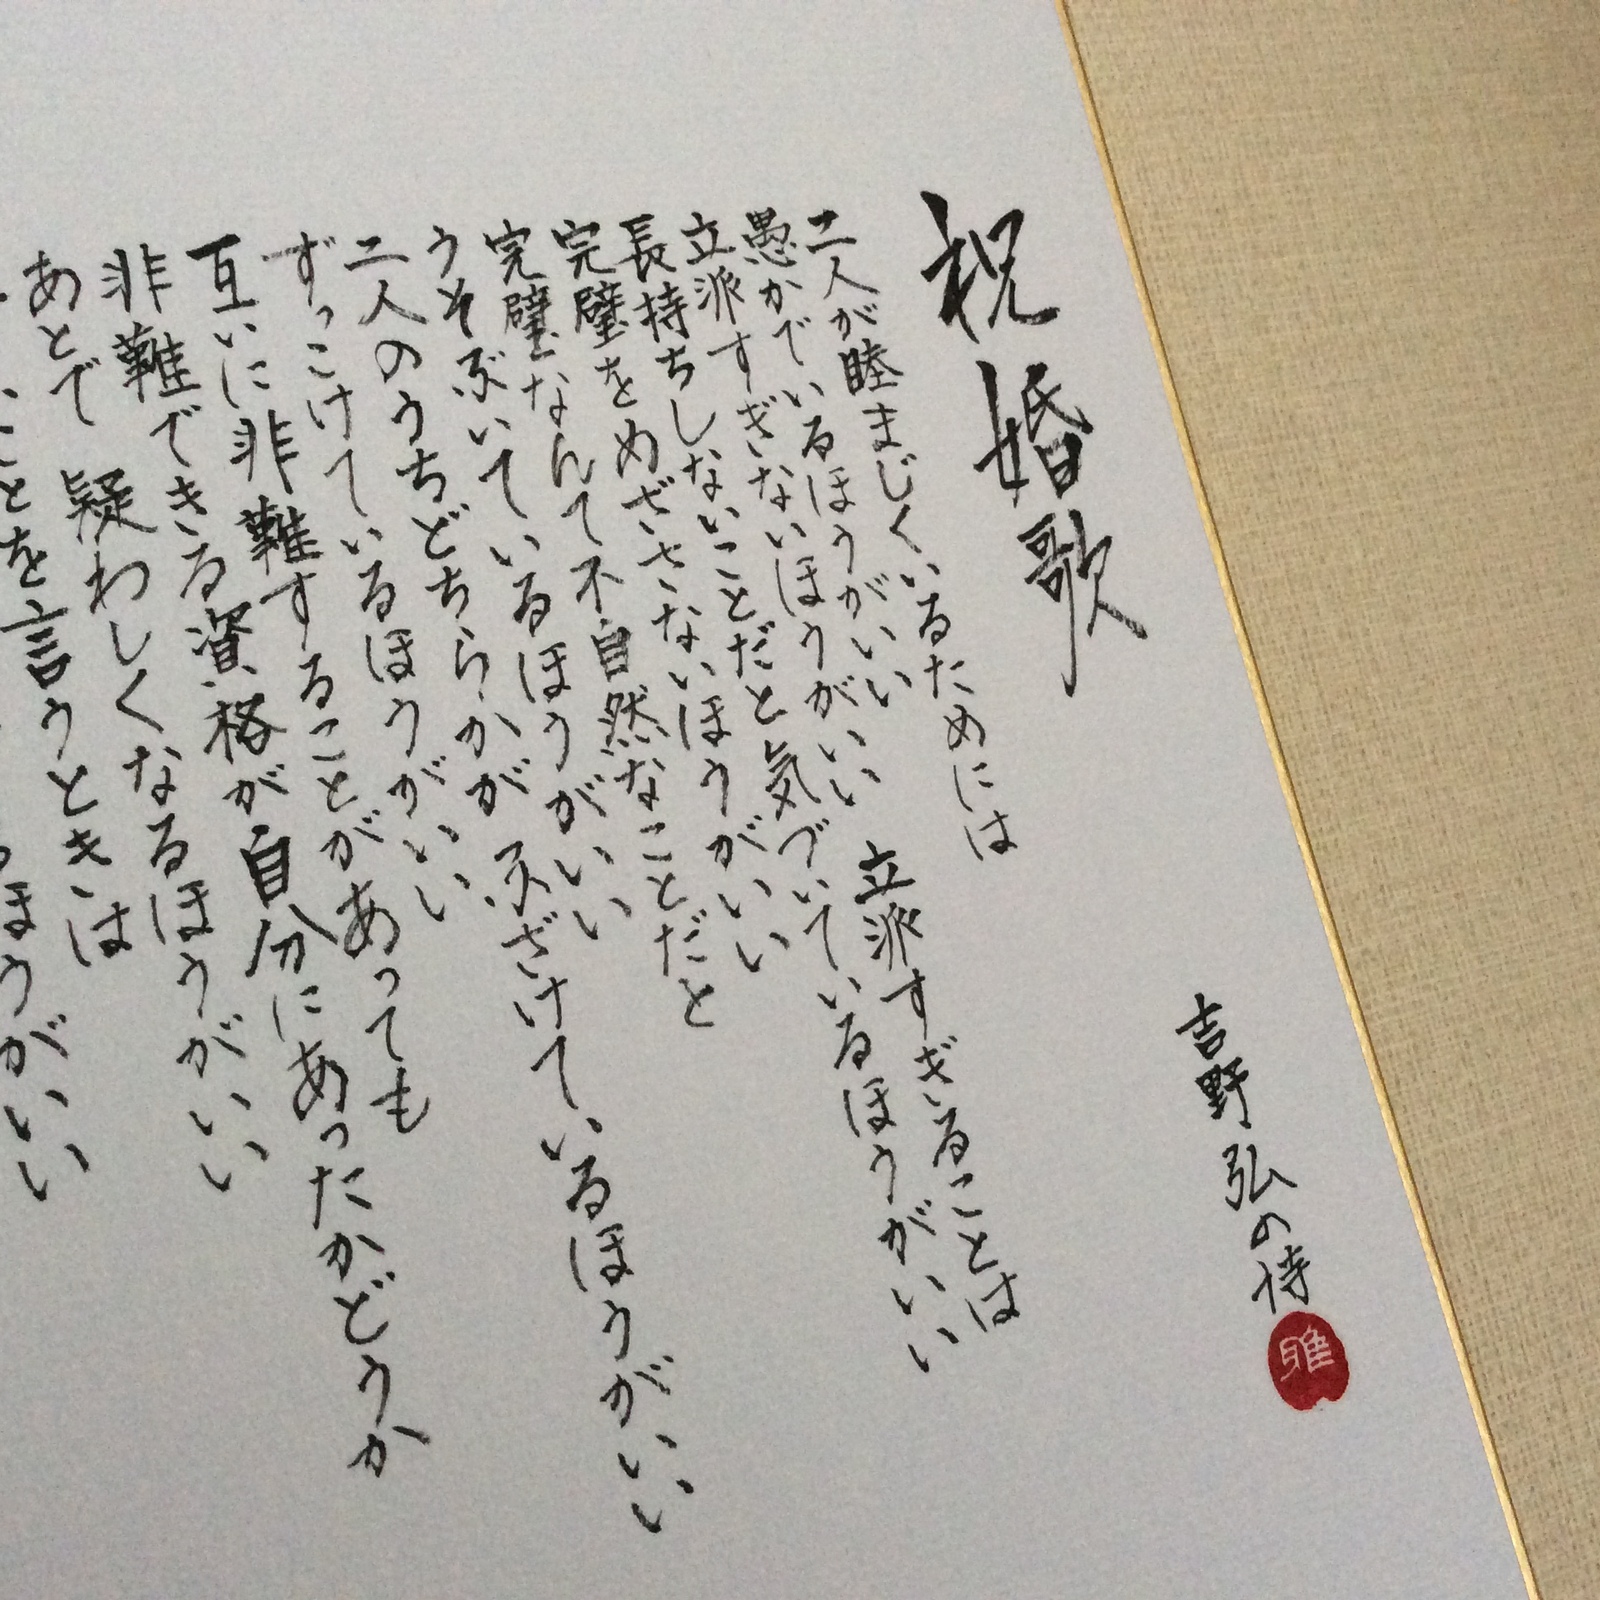 祝婚歌
吉野弘の詩
雅
二人が睦まじくいるためには
愚かでいるほうがいい
立派すぎないほうがいい　立派すぎることは
長持ちしないことだと気づいているほうがいい
完璧をめざさないほうがいい
完璧なんて不自然なことだと
うそぶいているほうがいい
二人のうちどちらかが　ふざけているほうがいい
ずっこけているほうがいい
互いに非難することがあっても
非難できる資格が自分にあったかどうか
あとで　疑わしくなるほうがいい
ことを言うときは
ほうがいい